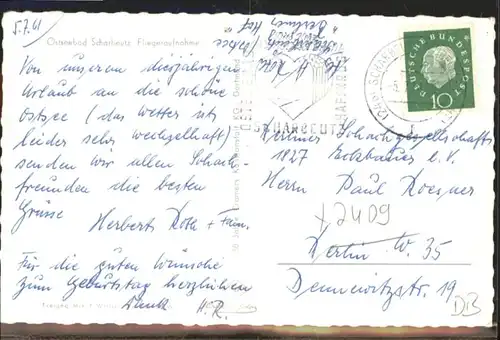 5.7.61
Ostseebad Scharbeutz Fliegeraufnahme
Von unserem diesjährigen
Urlaub an die schöne
Ostsee (das Wetter ist
leider sehr wechselhaft)
senden wir allen Schach-
freunden die besten
Grüsse
Herbert Roth + Fam.
Für die guten Wünsche
zum Geburtstag herzlichen
Dank H.R.
H. Roth
Scharbeutz / Ostsee
"Berliner Hof"
SCHARBEUTZ
DEUTSCHE BUNDESPOST
10
Berliner Schachgesellschaft
1827 Eckbauer e.V.
Herrn Paul Roesner
+2409
Berlin W. 35
Dennewitzstr. 19
DB